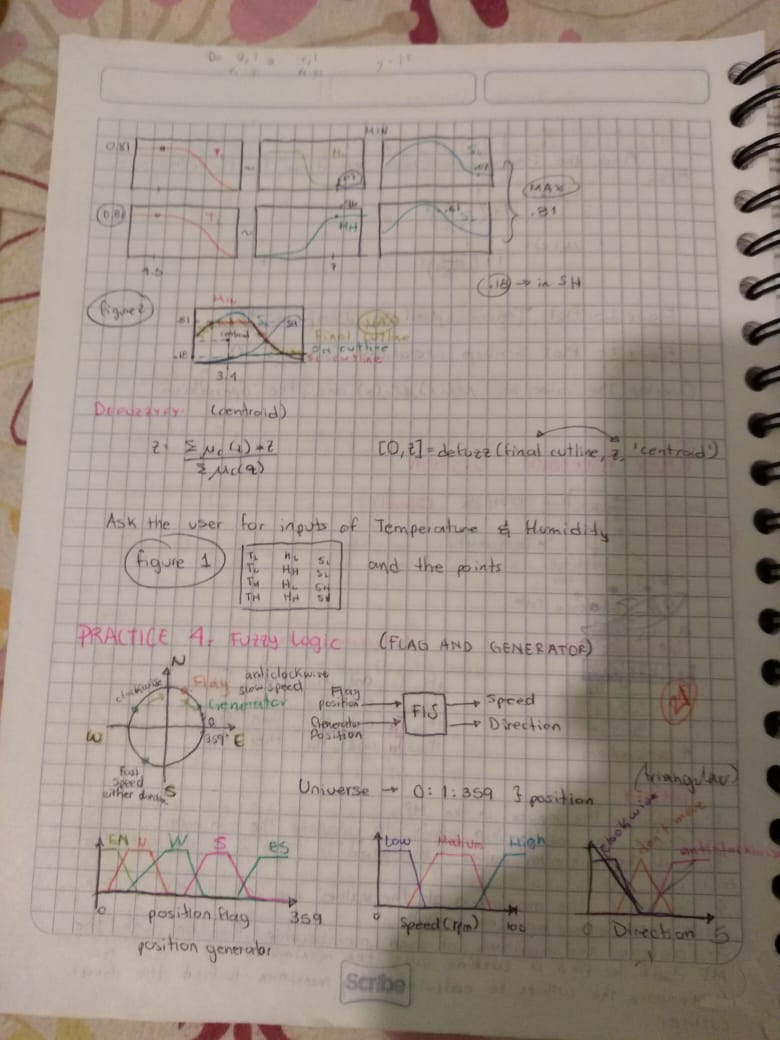 MIN
0.81 TL ~ HL SL
MAX
.81
0.81 TL ~ HH SL
.18 → in SH
figure 2
MIN
.81 SL SH MAX
centroid Final cutline
SH cutline
.18 SL cutline
3.1
Defuzzyfy (centroid)
Σ μc(z) * z
z =
Σ μc(z)
[0,z] = defuzz (final cutline, z, 'centroid')
Ask the user for inputs of Temperature & Humidity
figure 1
TL HL SL
TL HH SL
TH HL SH
TH HH SH
and the points
PRACTICE 4. Fuzzy Logic (FLAG AND GENERATOR)
N
clockwise Flag anticlockwise
slow speed
Generator
0
359° E
W
Fast
speed
either direction
S
Flag
position
Generator
Position
FIS
Speed
Direction
Universe → 0:1:359 } position
(triangular)
EN N W S ES
0 position flag 359
position generator
Low Medium High
0 Speed (rpm) 100
clockwise don't move anticlockwise
0 Direction 5
Scribe